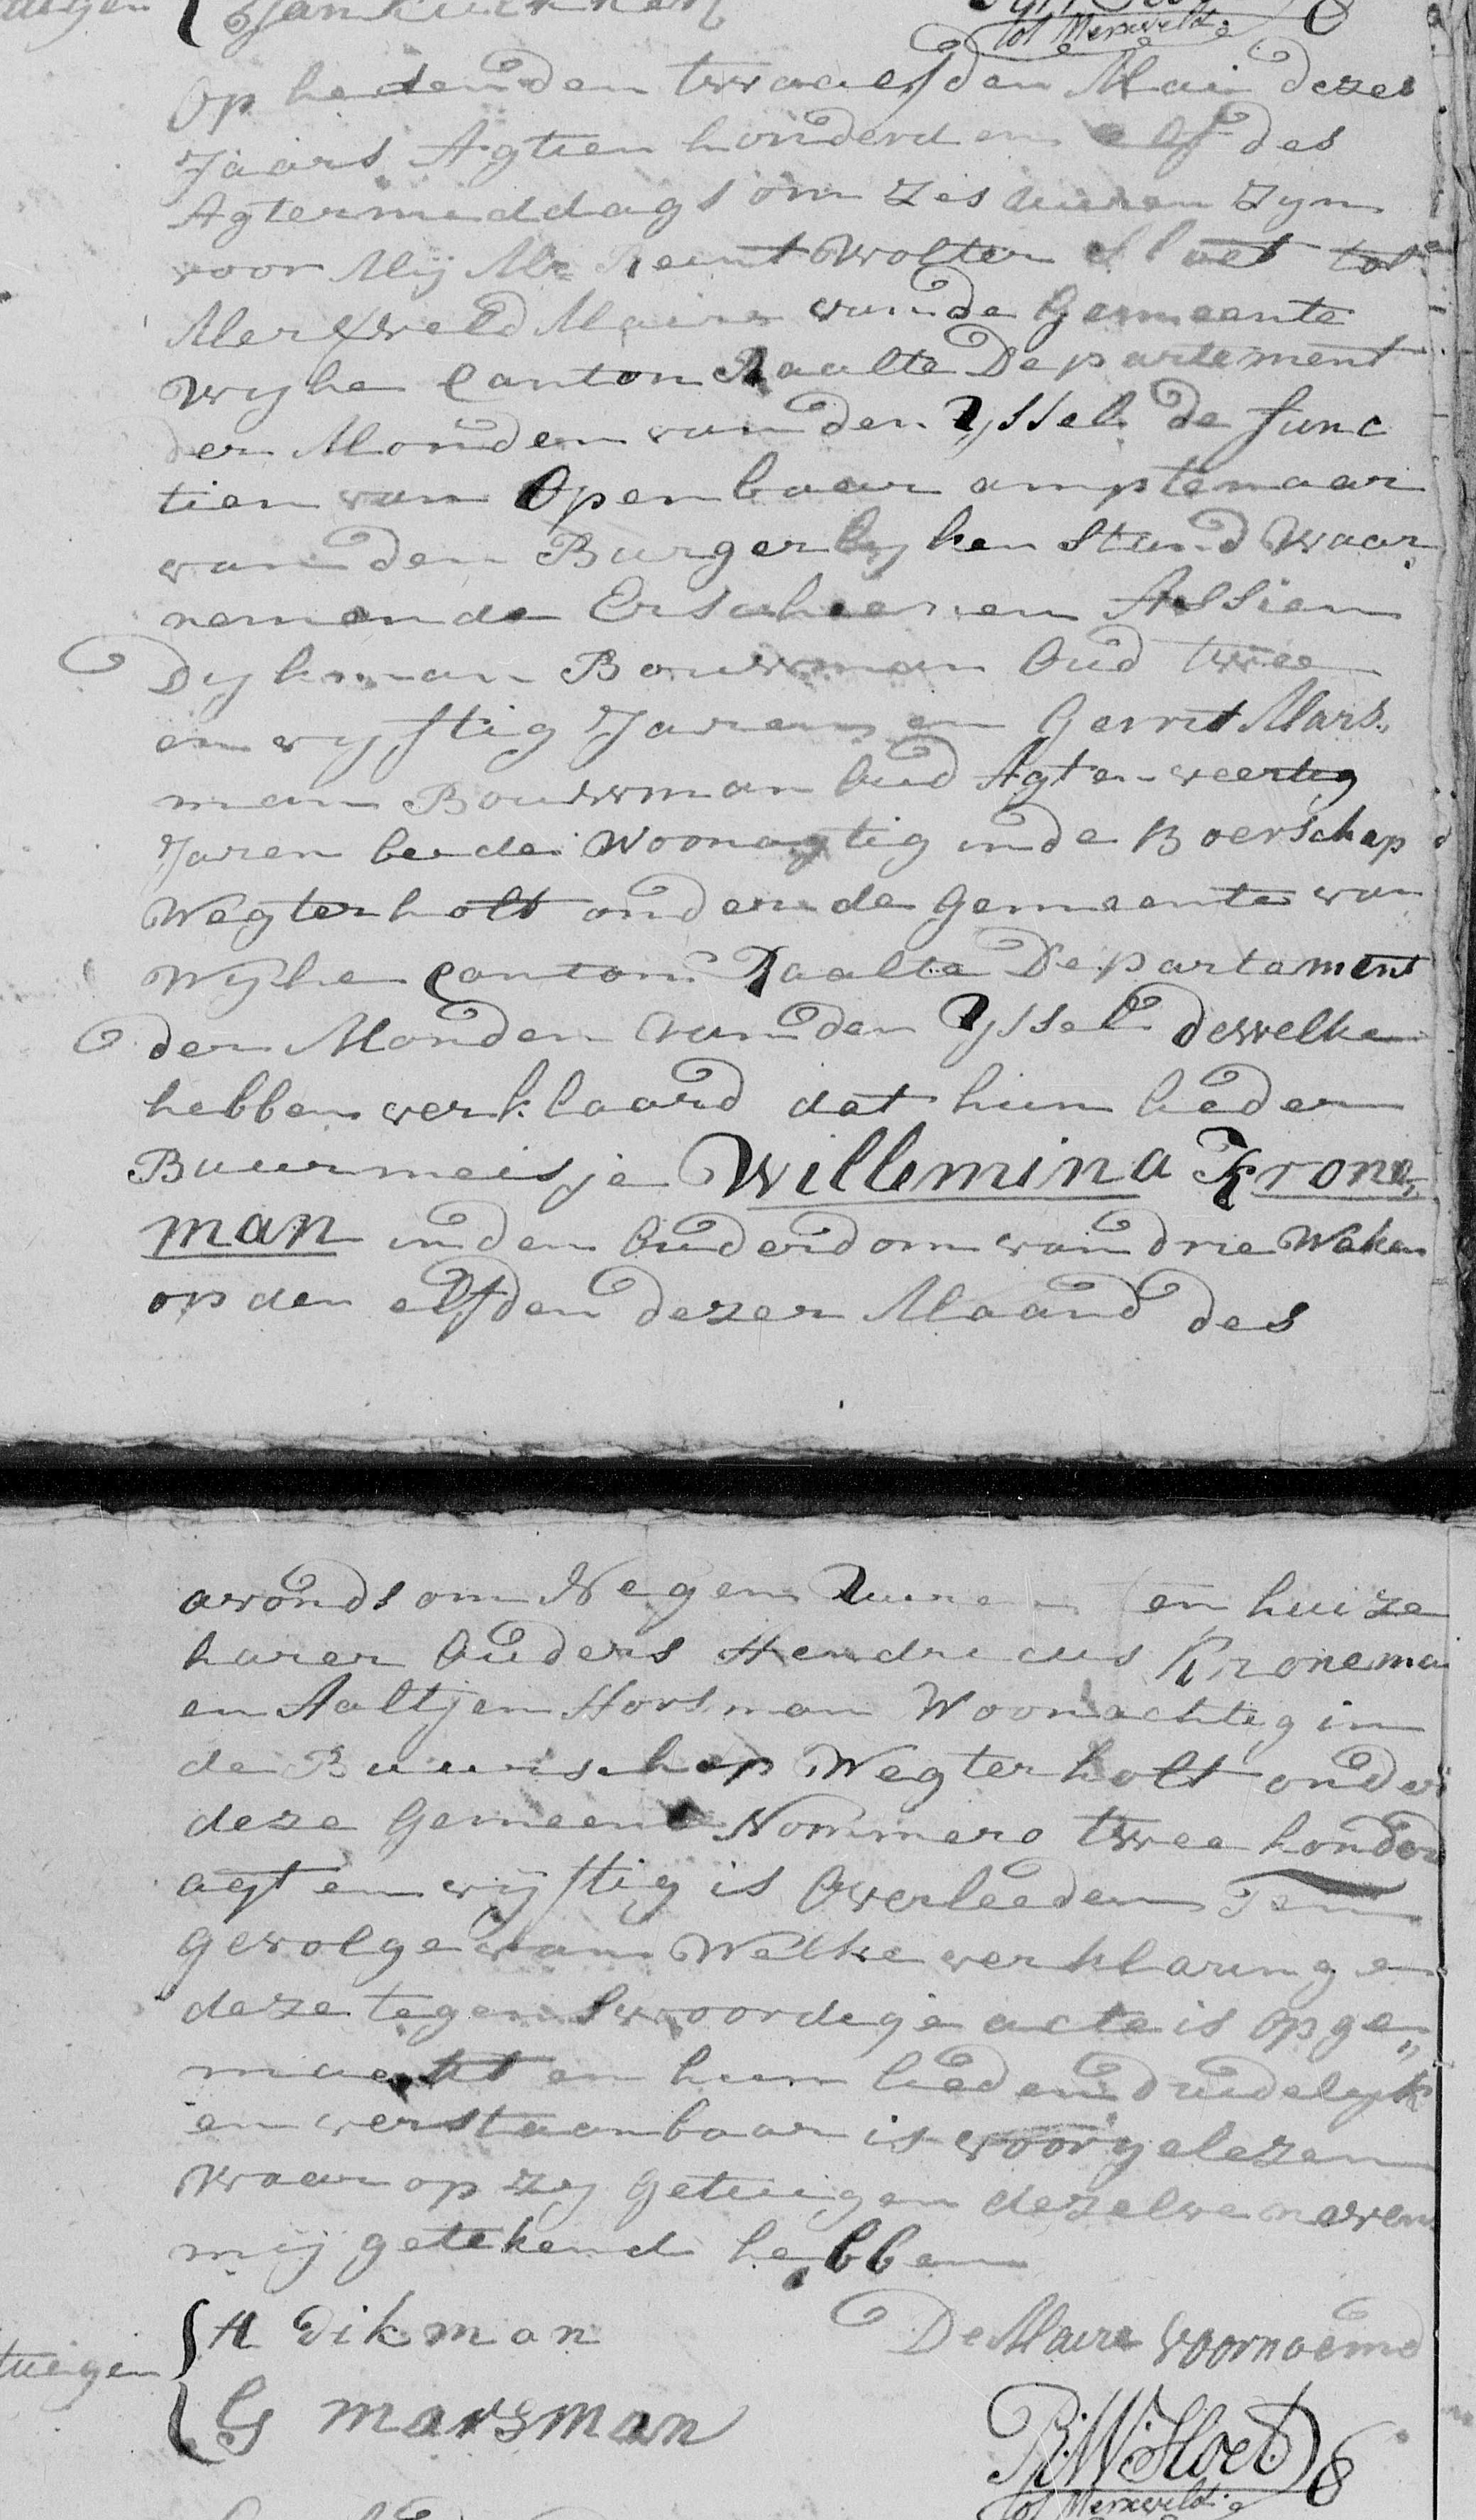 tot Merxveld
Op heden den twaalfden Mai dezes
Jaars Agtien honderd en elf des
Agtermiddags om zes uuren zyn
voor Mij Mr Reint Wolter Sloet tot
Merxveld Maire van de Gemeente
Wyhe Canton Raalte Departement
der Monden van den Yssel de func
tien van Openbaar amptenaar
van den Burgerlyken Stand Waar„
nemende Erscheenen Assien
Dykman Bouwman Oud twee
en vyftig Jaren en Gerrit Mars„
man Bouwman Oud Agt en veertig
Jaren beide Woonagtig in de Boerschap
Wegterholt onder de Gemeente van
Wyhe Canton Raalte Departement
der Monden van den Yssel dewelke
hebben verklaard dat hun lieder
Buurmeisje Willemina Krone„
man in den Ouderdom van drie Weken
op den elfden dezer Maand des
avonds om Negen Uuren ten huize
harer Ouders Hendricus Kroneman
en Aaltjen Horsman Woonachtig in
de Buurschap Wegterholt onder
deze Gemeente Nommero twee honderd
agt en vyftig is Overleeden Ten
gevolge van Welke verklaringen
deze tegenswoordige acte is opge„
maakt en hun lieden duidelyk
en verstaanbaar is voorgelezen
Waar op zy Getuigen dezelve neven
mij getekend hebben
A Dikman
De Maire voornoemd
tuigen
G marsman
R:W: Sloet
tot Merxveld